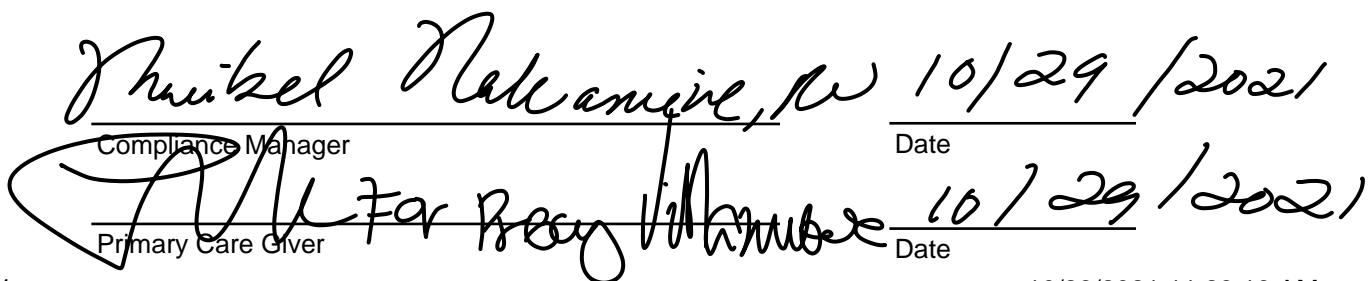 Maribel Nakamine, RN 10/29/2021
Compliance Manager Date
For 10/29/2021
Primary Care Giver Date